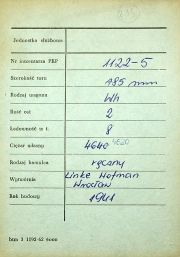 Jednostka służbowa
Nr inwentarza PKP 1122-5
Szerokość toru 785 mm
Rodzaj wagonu Wh
Ilość osi 2
Ładowność w t. 8
Ciężar własny 4640 4620
Rodzaj hamulca ręczny
Wytwórnia Linke Hofman
Wrocław
Rok budowy 1941